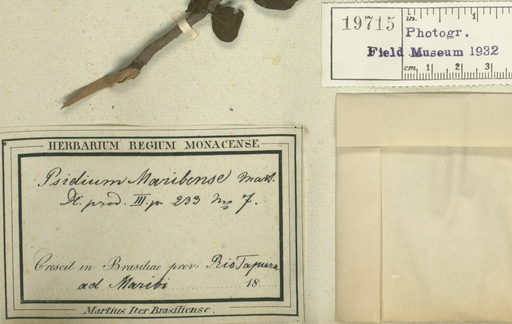 19715
in. 1
Photogr.
Field Museum 1932
cm. 1 2 3
HERBARIUM REGIUM MONACENSE
Psidium Maribense Mart.
III. p. 233 No 7.
Crescit in Brasiliae prov. Rio
ad Maribi 18
Martius Iter Brasiliense.